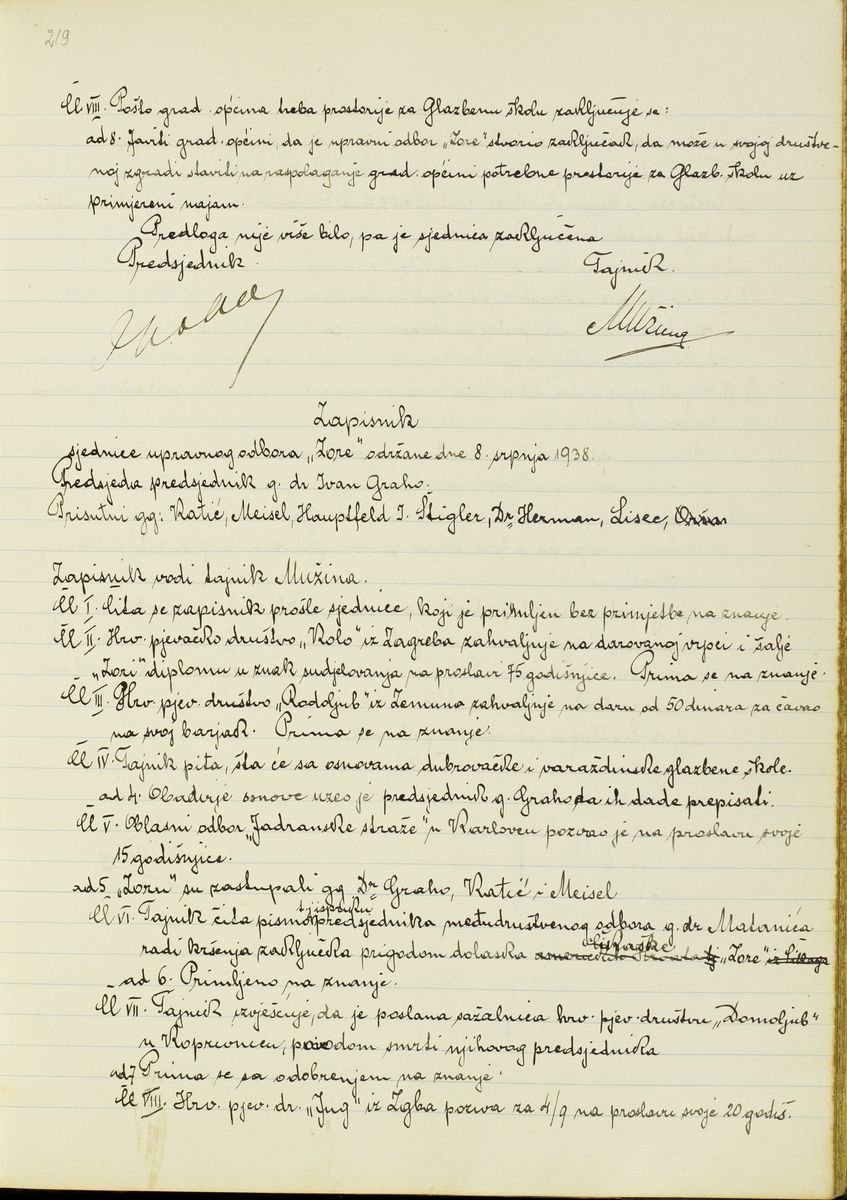 219
Čl VIII. Pošto grad. općina treba prostorije za Glazbenu školu zaključuje se:
ad 8. Javiti grad. općini, da je upravni odbor „Zore" stvorio zaključak, da može u svojoj društve-
noj zgradi staviti na raspolaganje grad. općini potrebne prostorije za Glazb. školu uz
primjereni najam.
Predloga nije više bilo, pa je sjednica zaključena
Predsjednik. Tajnik.
Mužina
Zapisnik
sjednice upravnog odbora „Zore" održane dne 8. srpnja 1938.
Predsjeda predsjednik g. dr Ivan Graho.
Prisutni gg: Katić, Meisel, Hauptfeld I. Štigler, Dr Herman, Lisec,
Zapisnik vodi tajnik Mužina.
Čl I. Čita se zapisnik prošle sjednice, koji je primljen bez primjetbe na znanje.
Čl II. Hrv. pjevačko društvo „Kolo" iz Zagreba zahvaljuje na darovanoj vrpci i šalje
„Zori" diplomu u znak sudjelovanja na proslavi 75 godišnjice. Prima se na znanje.
Čl III. Hrv. pjev. društvo „Rodoljub" iz Zemuna zahvaljuje na daru od 50 dinara za čavao
na svoj barjak. Prima se na znanje.
Čl IV. Tajnik pita, šta će sa osnovama dubrovačke i varaždinske glazbene škole.
ad 4. Obadvije osnove uzeo je predsjednik g. Graho da ih dade prepisati.
Čl V. Oblasni odbor „Jadranske straže" u Karlovcu pozvao je na proslavu svoje
15 godišnjice.
ad 5 „Zoru" su zastupali gg Dr Graho, Katić i Meisel
Čl VI. Tajnik čita pismo i ispriku predsjednika međudruštvenog odbora g. dr Matanića
radi kršenja zaključka prigodom dolaska čikaške „Zore"
ad 6. Primljeno na znanje.
Čl VII. Tajnik izvješćuje, da je poslana sažalnica hrv. pjev. društvu „Domoljub"
u Koprivnicu, povodom smrti njihovog predsjednika
ad 7 Prima se sa odobrenjem na znanje.
Čl VIII. Hrv. pjev. dr. „Jug" iz Zgba poziva za 4/9 na proslavu svoje 20 godiš.